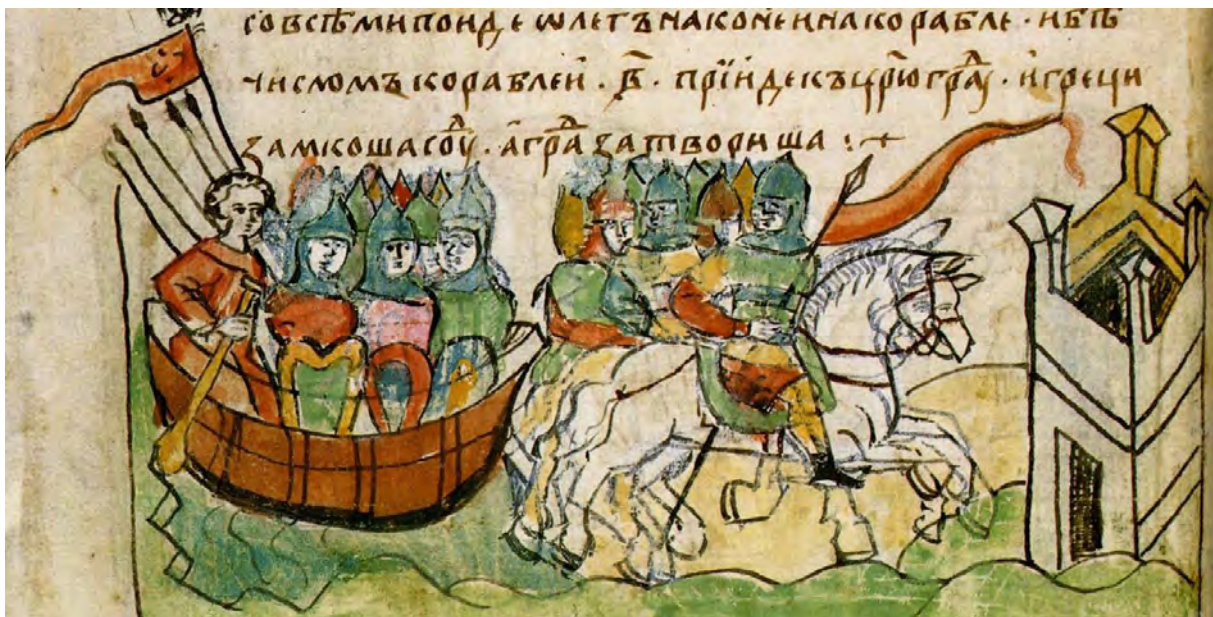 со всѣми поиде ѡлегъ на коне и на корабле · и бѣ
числомъ кораблей · в҃ · прїиде къ цр҃югра́ⷣу · и греци
замкоша соуⷣ · а граⷣ затвориша :+